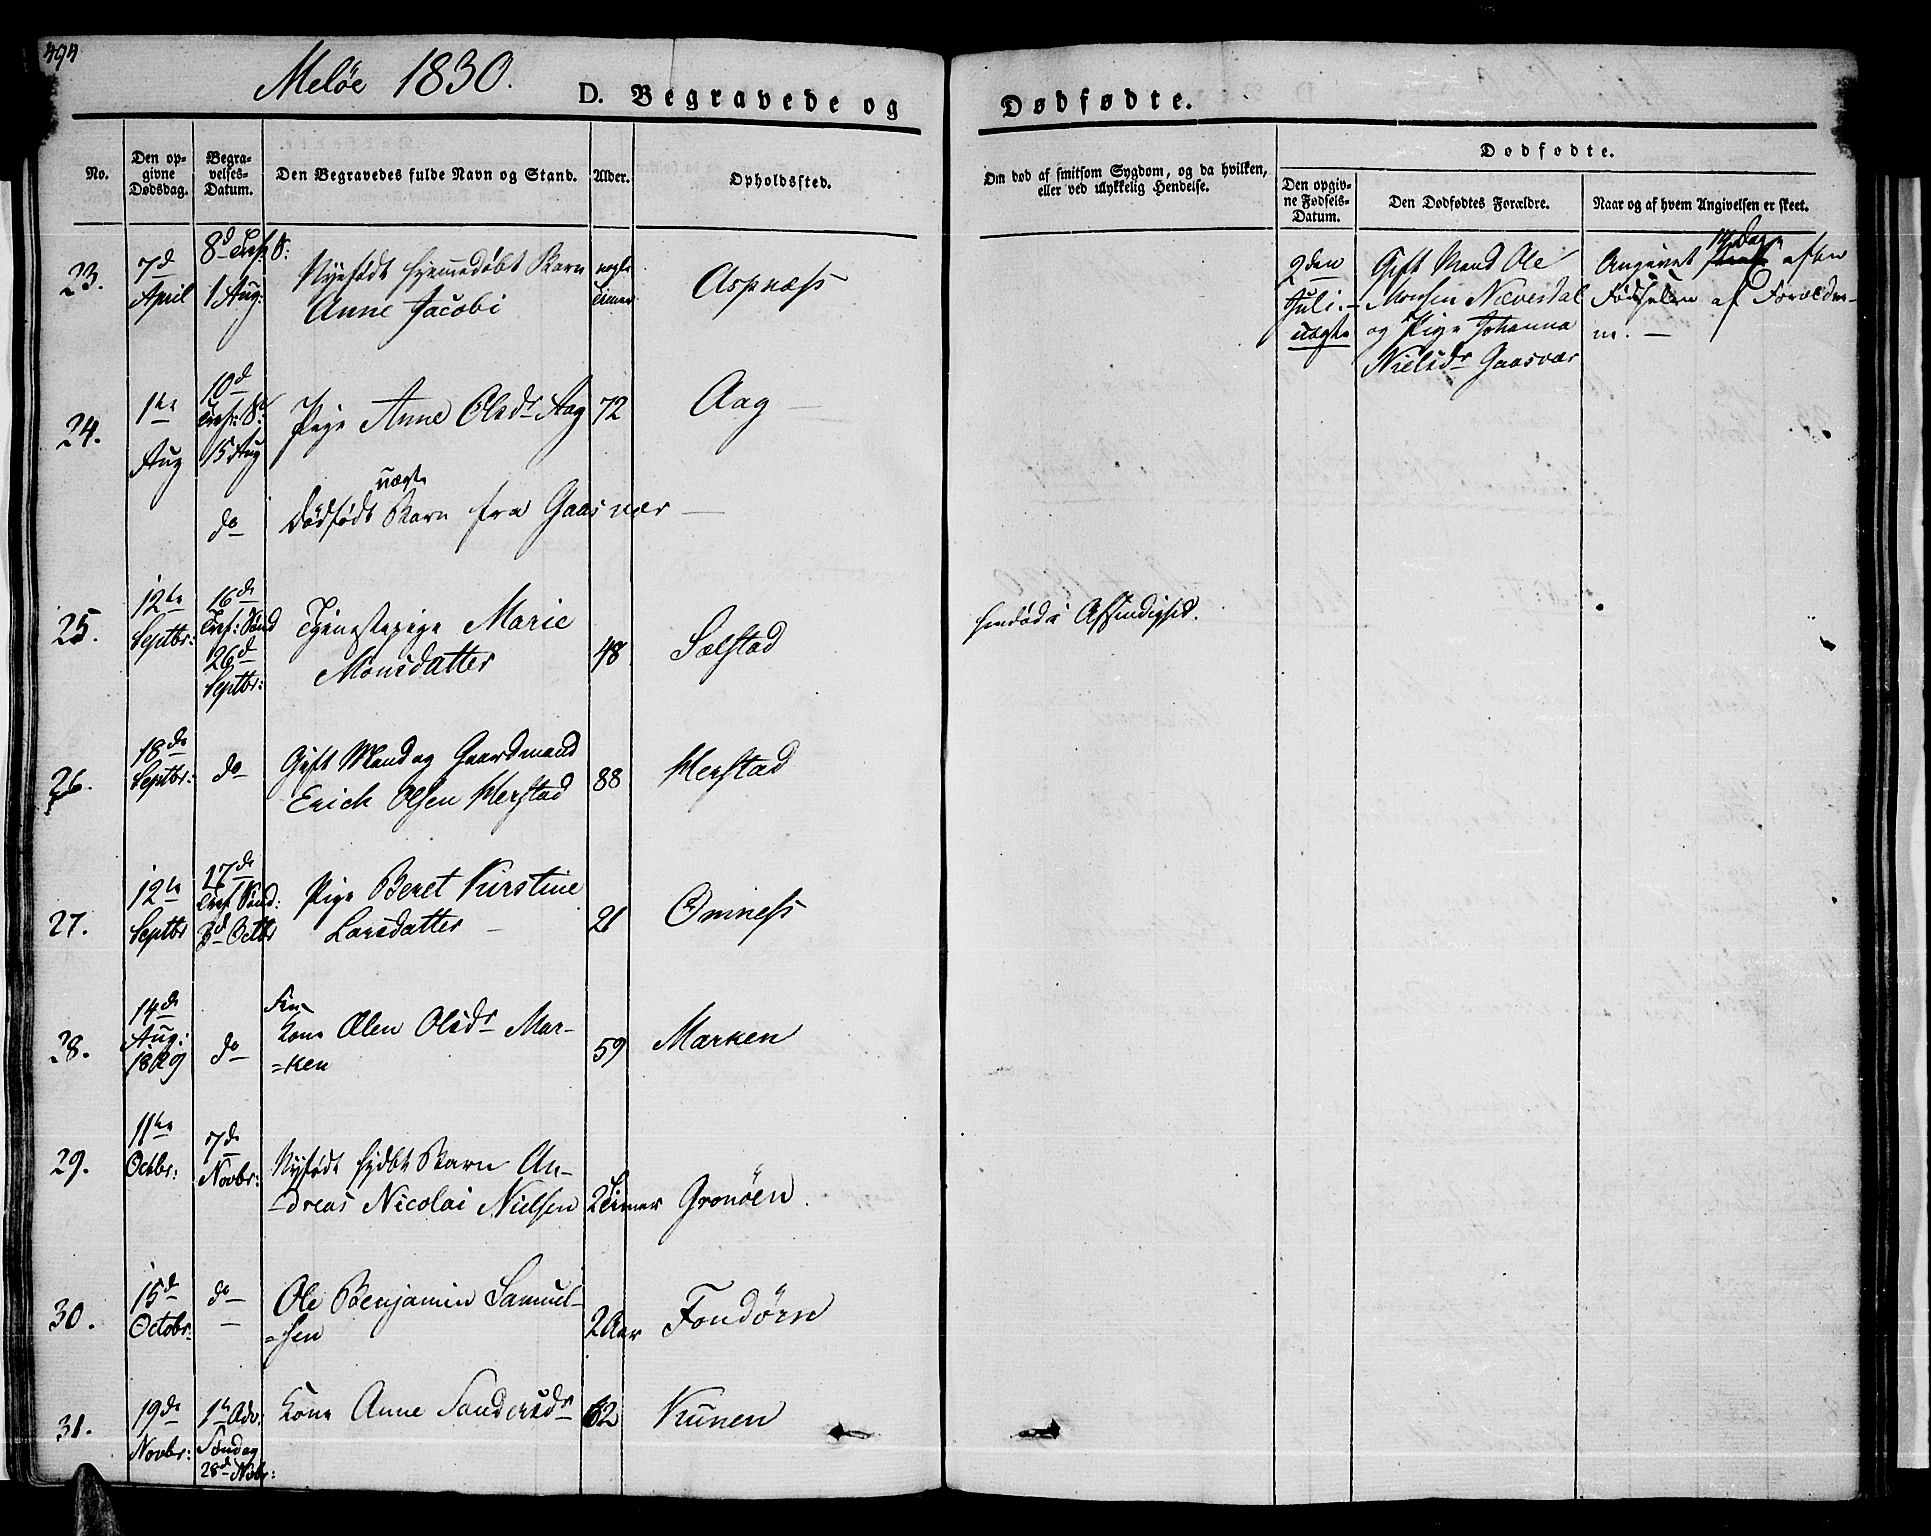 494
Meløe 1830.
D. Begravede og
Dødfødte.
No.
Den op-
givne
Dødsdag.
Begra-
velses-
Datum.
Den Begravedes fulde Navn og Stand.
Alder.
Opholdssted.
Om død af smitsom Sygdom, og da hvilken,
eller ved ulykkelig Hendelse.
Dødfødte.
Den opgiv-
ne Fødsels-
Datum.
Den Dødfødtes Forældre.
Naar og af hvem Angivelsen er skeet.
23.
7d
April
8d Tref. S:
1 Aug:
Nyefødt hjemmedøbt Barn
Anne Jacobi
nogle
Timer
Aspnæss
2den
Juli.-
uægte
Gift Mand Ole
Monsen Næverdal
og Pige Johanna
Nielsdr Gaasvær
14 Dage
Angivet efter
Fødselen af Forældre-
ne. -
24.
1te
Aug
10d
Tref: S:
15 Aug
Pige Anne Olsdr Aag
72
Aag
do
uægte
Dødfødt Barn fra Gaasvær
25.
12te
Septbr:
16de
Tref: Sønd
26d
Septbr:
Tjenestepige Marie
Monsdatter
48
Sælstad
hendøde i Afsindighed.
26.
18de
Septbr:
do
Gift Mand og Gaardmand
Erich Olsen Merstad
88
Merstad
27.
12te
Septbr
17de
Tref. Sønd:
3d Octbr
Pige Beret Kirstine
Larsdatter
21
Omness
28.
14de
Aug:
1829
do
Fin
Kone Ælen Olsdr Mar-
=ken
59
Marken
29.
11te
Octbr:
7de
Novbr:
Nyfødt hjdbt Barn An-
-dreas Nicolai Nielsen
2 Timer
Gronøen.
30.
15d
Octobr
do
Ole Benjamin Samuel-
=sen
2 Aar
Fondøen
31.
19de
Novbr:
1te Adv:
Søndag
28d Nvbr:
Kone Anne Sandersdr
62
Kunen